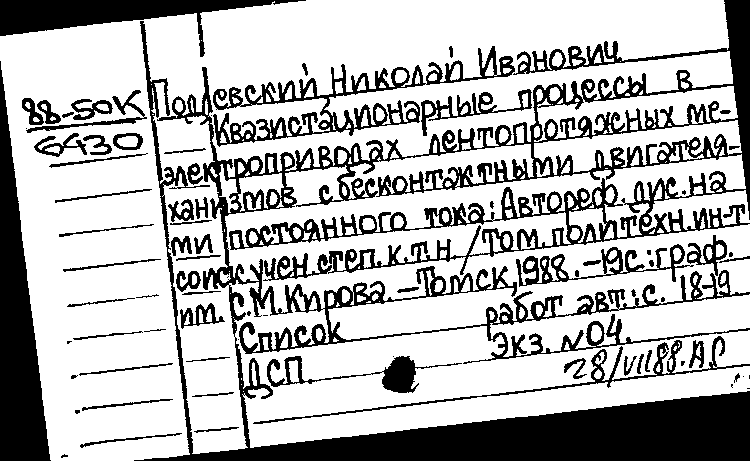 88-50К
6430
Подлевский Николай Иванович
Квазистационарные процессы в
электроприводах лентопротяжных ме-
ханизмов с бесконтактными двигателя-
ми постоянного тока: Автореф. дис. на
соиск. учен. степ. к.т.н. / Том. политехн. ин-т
им. С.М. Кирова. – Томск, 1988. – 19с.: граф.
Список работ авт.: с. 18-19
ДСП. Экз. N04.
28/VII88. АР